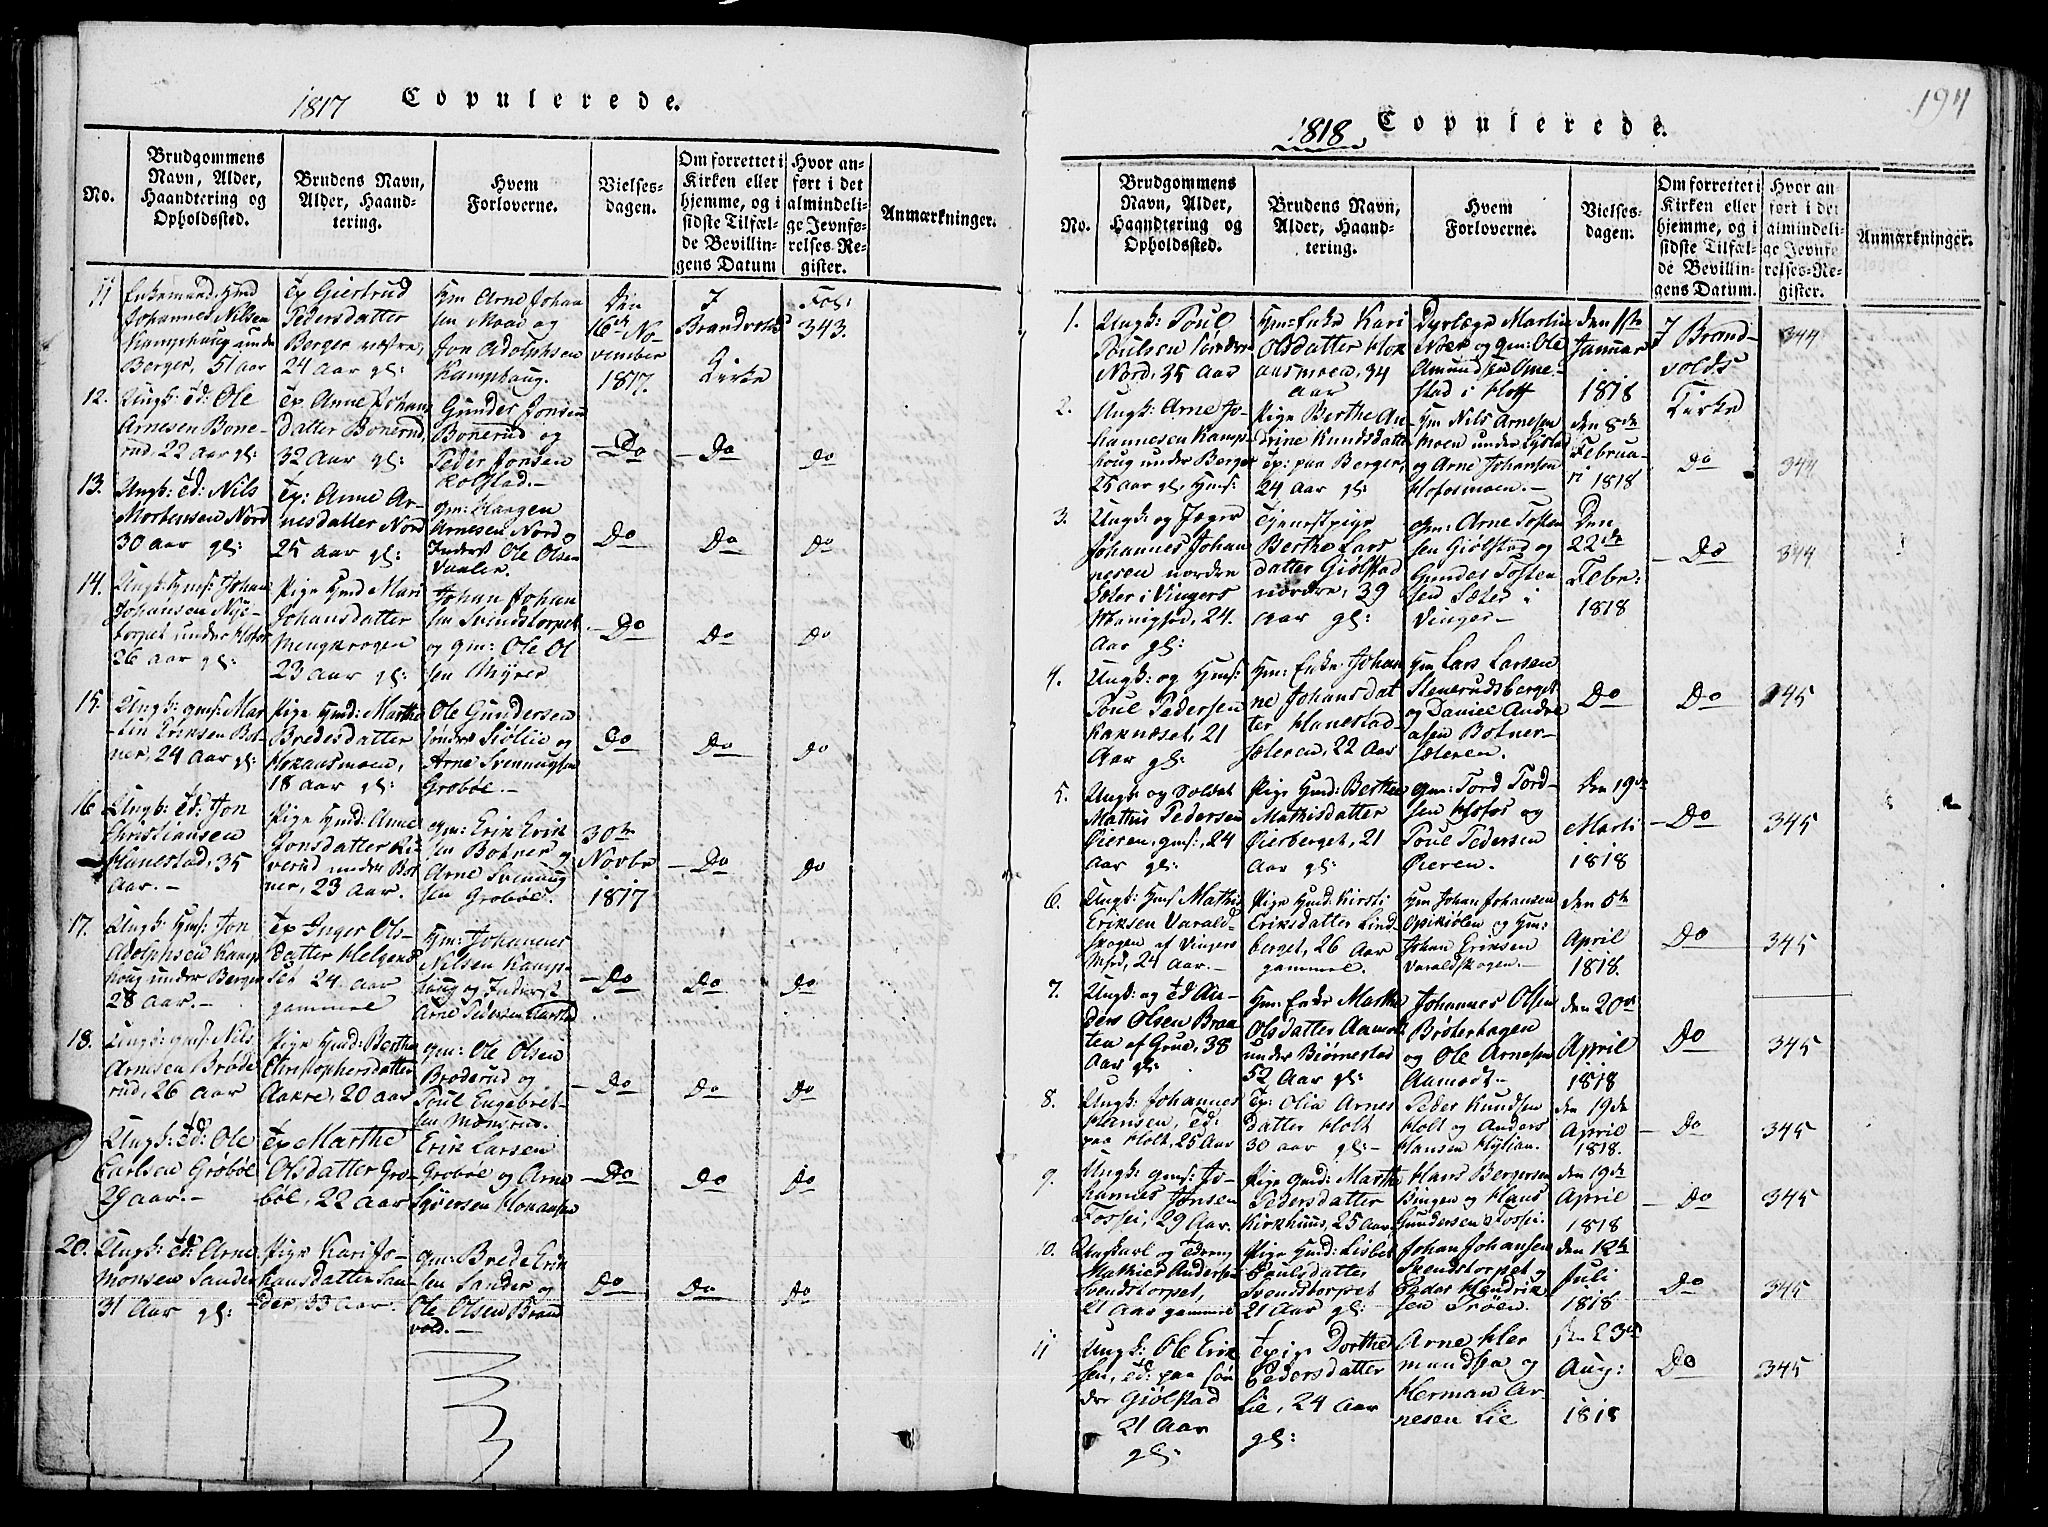 1817 Copulerede.
No.
Brudgommens
Navn, Alder,
Haandtering og
Opholdssted.
Brudens Navn,
Alder, Haand-
tering.
Hvem
Forloverne.
Vielses-
dagen.
Om forrettet i
Kirken eller
hjemme, og i
sidste Tilfæl-
de Bevillin-
gens Datum
Hvor an-
ført i det
almindeli-
ge Jevnfø-
relses-Re-
gister.
Anmærkninger.
11
Enkemand
Johannes Nilsen
Kamphaug under
Berger, 51 aar
Tp Giertrud
Pedersdatter
Berger
24 Aar gl:
Gm Arne Johan
sen Moae og
Jon Adolphsen
Kamphaug.
Den
16de No-
vember
1817.
I
Brandvolds
Kirke
Fol:
343.
12.
Ungk: Td: Ole
Arnesen Bone-
rud, 22 Aar gl:
Tp. Anne Johans
datter Bonerud,
32 Aar gl:
Gunder Jonsen
Bonerud og
Peder Jonsen
Kolstad.-
Do
Do
Do
13.
Ungk: Td: Nils
Mortensen Nord
30 aar gl:
Tp: Anne Ar-
nesdatter Nord
25 aar gl:
gm: Haagen
Arnesen Nord
Inderst Ole Olsen
Vaaler.
Do
Do
Do
14.
Ungk: Hms: Johan
Johansen Nye-
torpet under Hofos
26 aar gl:
Pige Hmd Mari
Johansdatter
Mengkrogen
23 Aar gl:
Johan Johan
sen Svendstorpet
og gm: Ole Ol
sen Myrer
Do
Do
Do
15.
Ungk: gms: Mar
tin Eriksen Bot-
ner, 24 Aar gl:
Pige Hmd: Marthe
Bredesdatter
18 aar gl:
Ole Gundersen
søndre Siølie og
Arne Svennugsen
Grobøl.-
Do
Do
Do
16.
Ungk: Td: Jon
Christiansen
Hanestad, 35
Aar.-
Pige Hmd: Anne
Jonsdatter
verud under Bot
ner, 23 Aar.
gm: Erik Erik
sen Botner og
Arne Svennug
sen Grobøl.
30te
Novbr
1817
Do
Do
17.
Ungk: Hms: Jon
Adolphsen Kamp
houg under Berger
28 Aar.-
Tp Inger Ols-
datter Helgend
set 24 aar
gammel
Hm: Johannes
Nilsen Kamp-
haug og Inderst
Arne Pedersen
Do
Do
Do
18.
Ungk: gms: Nils
Arnesen Brøde
rud, 26 aar
Pige Hmd: Berthe
Christophersdatter
Aakre, 20 aar
gm: Ole Olsen
Brøderud og
Poul Engebret-
sen Momrud.
Do
Do
Do
Ungk: Td: Ole
Carlsen Grøbøl
29 aar.-
Tp Marthe
Olsdatter Gro-
bøl, 22 Aar
Erik Larsen
Grobøl og Arne
Syversen
Do
Do
Do
20.
Ungk: Td: Arne
Monsen Sander
31 Aar gl:
Pige Kari Jo-
hansdatter San-
der, 33 Aar.
gm: Brede Erik
sen Sander og
Ole Olsen Brand
vold.-
Do
Do
Do
194
1818 Copulerede.
No.
Brudgommens
Navn, Alder,
Haandtering og
Opholdssted.
Brudens Navn,
Alder, Haand-
tering.
Hvem
Forloverne.
Vielses-
dagen.
Om forrettet i
Kirken eller
hjemme, og i
sidste Tilfæl-
de Bevillin-
gens Datum.
Hvor an-
ført i det
almindeli-
ge Jevnfø-
relses-Re-
gister.
Anmærkninger.
1.
Ungk: Poul
Poulsen
Nord, 35 Aar
Hm: Enke Kari
Olsdatter
34
aar
Dyrlæge Martin
Noer og gm: Ole
Amundsen One-
stad i Hoff
den 11te
Januar
1818
I Brand-
volds
Kirke
344
2.
Ungk: Arne Jo-
hannesen Kamp-
houg under Berger
25 aar gl, Hms:
Pige Berthe An
drine Knudsdatter
Tp: paa Berger,
24 Aar gl:
Hm Nils Arnesen
moen under
og Arne Johansen
Hofosmoen.-
den 8de
Februa-
ri 1818
Do
344
3.
Ungk: og Jæger
Johannes Johan
nesen nordre
Seter i Vingers
24.
Aar gl:
Tjenestpige
Berthe Lars
datter Giølstad
nordre, 39
aar gl:
gm: Arne Tosten
sen Giølstad og
Gunder Tosten
sen Sæter i
Vinger-
Den
22de
Febr:
1818
Do
344
4.
Ungk: og Hms:
Poul Pedersen
21
Aar gl:
Hm: Enke: Johan
ne Johansdat
ter Hanestad-
sæteren, 22 Aar
Hm Lars Larsen
Stenerudsberget
og Daniel Andre
asen Botner-
sæteren.
Do
Do
345
5.
Ungk: og Soldat
Mathis Pedersen
Øieren, gms:, 24
aar gl:
Pige Hmd: Berthe
Mathisdatter
Øierberget, 21
aar gl:
gm: Tord Tord-
sen Hofos og
Poul Pedersen
Øieren.
Den 19de
Marti
1818
Do
345
6.
Ungk: Hms Mathis
Eriksen Varald-
skogen af Vingers
24 Aar.-
Pige Hmd: Kirsti
Eriksdatter Lind-
berget, 26 Aar
gammel.
Hm Johan Johansen
og Hm:
Johan Eriksen
Varaldskogen.-
den 5te
April
1818.
Do
345
7.
Ungk: og Td An-
ders Olsen Braa
ten af Grue, 38
Aar gl:
Hm: Enke Marthe
Olsdatter Aamodt
under Biørnestad
52 Aar gl:
Johannes Olsen
Brøterhagen
og Ole Arnesen
Aamodt-
den 20de
April
1818
Do
345
8.
Ungk: Johannes
Hansen, Td:
paa Holt, 25 Aar
Tp: Olia Arnes
datter Holt
30 aar gl:-
Peder Knudsen
Holt og Anders
Hansen Mylian.
den 19de
April
1818.
Do
345
9.
Ungk: gms: Jo-
hannes Jonsen
Fossei, 29 Aar.
Pige gmd: Marthe
Pedersdatter
Kirkhuus, 25 aar
Hans Bergersen
Bingen og Hans
Gundersen Fossei.
den 19de
April
1818
Do
345
10.
Ungkarl og Tdreng
Mathies Andersen
Svendstorpet,
21 Aar gammel
Pige Hmd: Lisbet
Paulsdatter
Svendstorpet
21 Aar gl:
Johan Johansen
Svendstorpet og
Peder Hendrik
sen Trøen.
den 12te
Juli
1818
Do
345
11
Ungk: Ole Erik
sen, Td: paa søn
dre Giølstad
21 Aar
gl:
Tpige Dorthe
Pedersdatter
Lie, 24 Aar
gl:
Arne Her
mandsen og
Herman Ar-
nesen Lie
den 23de
Aug:
1818
Do
345